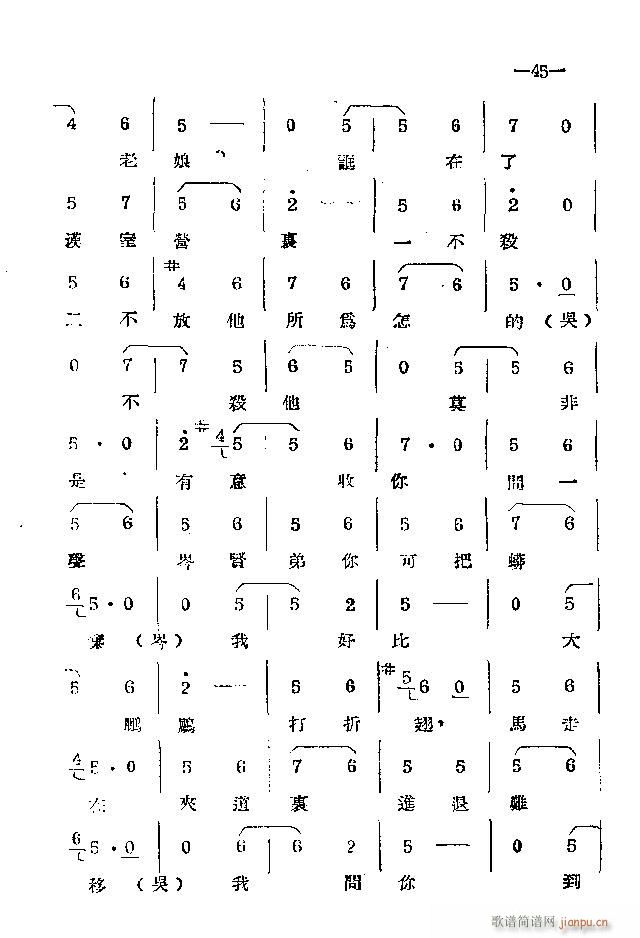 —45—
4 6 | 5 — | 0 5 | 5 6 | 7 0
老娘, 誆在了
5 7 | 5 6 | 2 — | 5 6 | 2 0
漢室營裏一不殺
5 6 | #4 6 | 7 6 | 7 6 | 5 · 0
二不放他所爲怎的(吳)
0 7 | 7 5 | 6 5 | 0 5 | 5 6
不殺他莫非
5 · 0 | 2 #4 5 | 5 6 | 7 · 0 | 5 6
是有意收你問一
5 6 | 5 6 | 5 6 | 5 5 | 7 6
聲岑賢弟你可把
6 5 · 0 | 0 5 | 5 2 | 5 — | 0 5
(岑)我好比大
5 6 | 2 — | 5 6 | #5 6 0 | 5 6
鵬打折翅,馬走
4 5 · 0 | 5 6 | 7 6 | 5 5 | 5 6
在夾道裏進退難
6 5 · 0 | 0 6 | 6 2 | 5 — | 0 5
移(吳)我問你到
歌谱简谱网
jianpu.cn